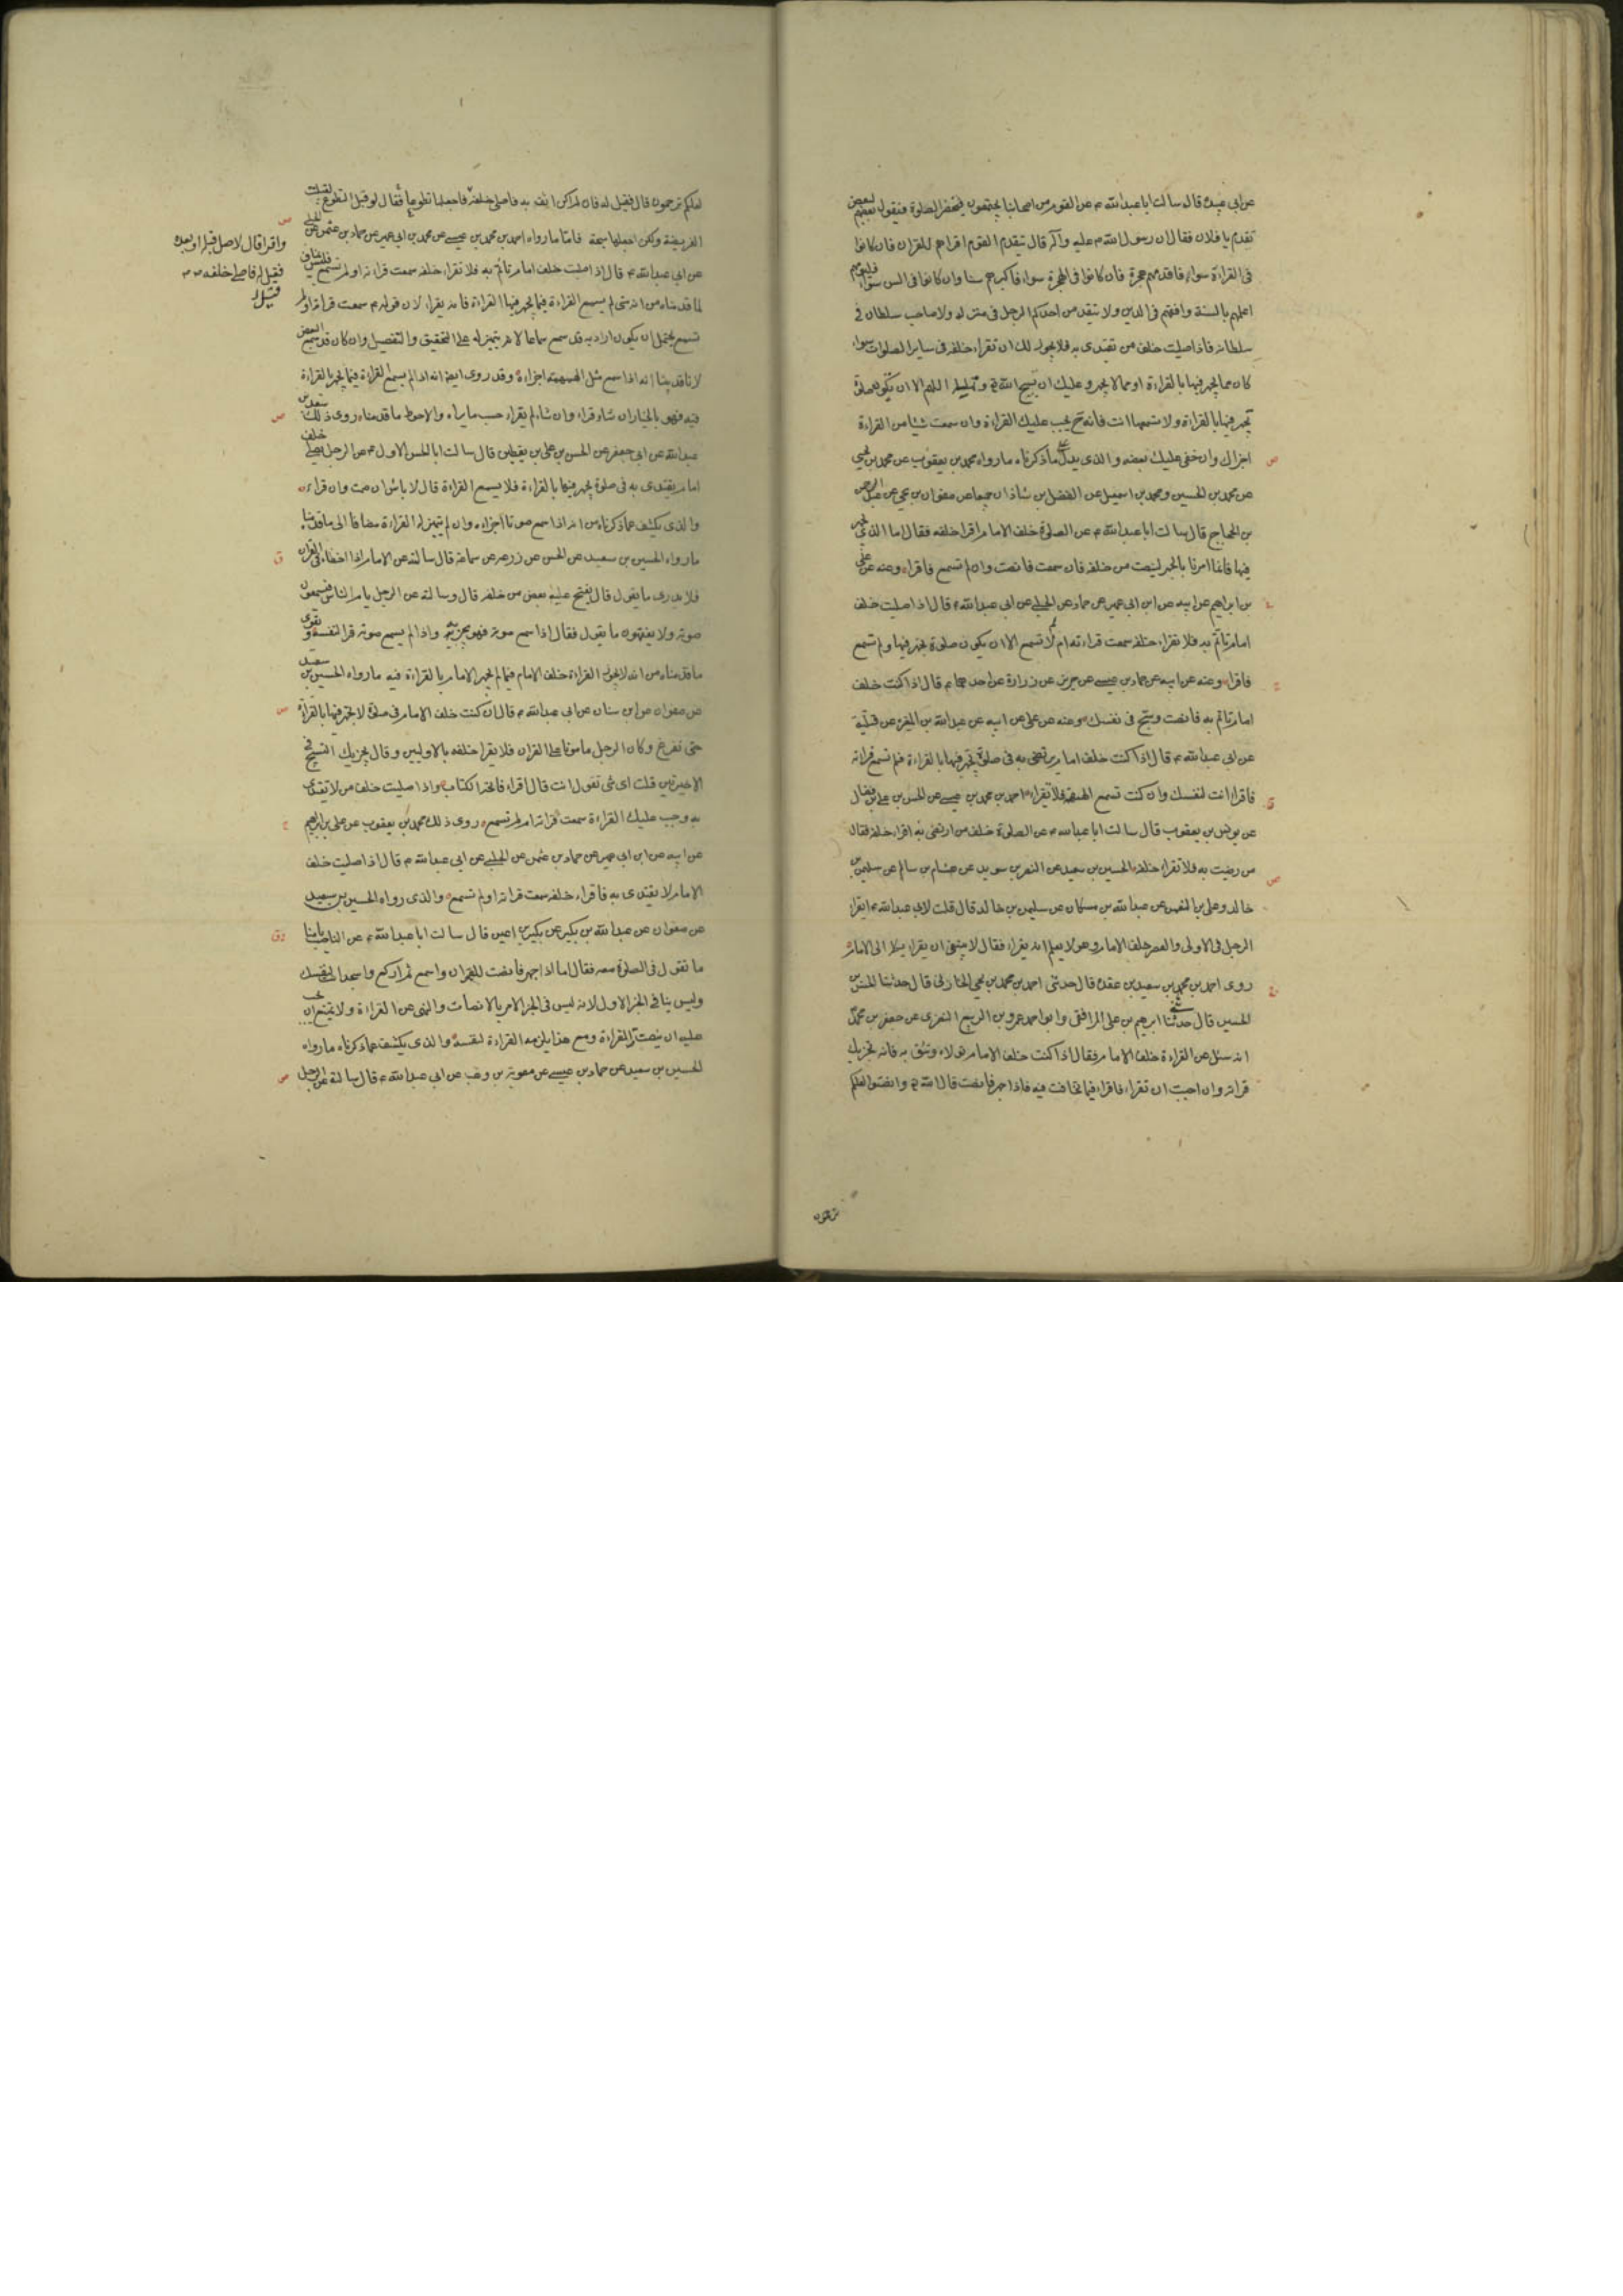 عن ابي عبيدة قال سالت ابا عبدالله ع عن القوم من اصحابنا يجتمعون فيحضر الصلوة فيقول بعضهم لبعض
تقدم يا فلان فقال ان رسول الله ص عليه وآله قال يتقدم القوم اقراهم للقران فان كانوا
فى القراءة سواء فاقدمهم هجرة فان كانوا فى الهجرة سواء فاكبرهم سنا وان كانوا فى السن سواء فليؤمهم
اعلمهم بالسنة وافقههم فى الدين ولا يتقدمن احدكم الرجل فى منزله ولا صاحب سلطان فى
سلطانه فاذا صليت خلف من تقتدى به فلا يجوز لك ان تقراء خلفه فى ساير الصلوات سواء
كان مما يجهر فيها بالقراءة او مما لا يجهر وعليك ان تسبح الله تع وتهلله اللهم الا ان تكون صلوة
تجهر فيها بالقراءة ولا تسمعها انت فانه ح يجب عليك القراءة وان سمعت شيئا من القراءة
اجزاك وان خفى عليك بعضه والذى يدل على ما ذكرناه مارواه محمد بن يعقوب عن محمد بن يحيى
عن محمد بن الحسين ومحمد بن اسمعيل عن الفضل بن شاذان جميعا عن صفوان بن يحيى عن عبد الرحمن
بن الحجاج قال سالت ابا عبدالله ع عن الصلوة خلف الامام اقرا خلفه فقال اما الذى يجهر
فيها فانما امرنا بالجهر لينصت من خلفه فان سمعت فانصت وان لم تسمع فاقراء وعنه عن على
بن ابراهيم عن ابيه عن ابن ابى عمير عن حماد عن الحلبى عن ابى عبدالله ع قال اذا صليت خلف
امام تاتم به فلا تقراء خلفه سمعت قراءته ام لم تسمع الا ان يكون صلوة يجهر فيها ولم تسمع
فاقراء وعنه عن ابيه عن حماد بن عيسى عن حريز عن زرارة عن احدهما ع قال اذا كنت خلف
امام تاتم به فانصت وسبح فى نفسك وعنه عن على عن ابيه عن عبدالله بن المغيرة عن قتيبة
عن ابى عبدالله ع قال اذا كنت خلف امام ترتضى به فى صلوة يجهر فيها بالقراءة فلم تسمع قراته
فاقرا انت لنفسك وان كنت تسمع الهمهمة فلا تقراء احمد بن محمد بن عيسى عن الحسن بن على بن فضال
عن يونس بن يعقوب قال سالت ابا عبدالله ع عن الصلوة خلف من ارتضى به اقراء خلفه فقال
من رضيت به فلا تقراء خلفه الحسين بن سعيد عن النضر بن سويد عن هشام بن سالم عن سليمن بن
خالد وعلى بن النعمن عن عبدالله بن مسكان عن سليمن بن خالد قال قلت لابى عبدالله ع ايقرا
الرجل فى الاولى والعصر خلف الامام وهو لا يعلم انه يقراء فقال لا ينبغى ان يقراء يكله الى الامام
روى احمد بن محمد بن سعيد بن عقدة قال حدثنى احمد بن محمد بن يحيى الخازنى قال حدثنا الحسن بن
الحسين قال حدثنا ابرهيم بن على المرافقى وابو احمد عمرو بن الربيع النصرى عن جعفر بن محمد
انه سئل عن القراءة خلف الامام فقال اذا كنت خلف الامام تولاه وتثق به فانه يجزيك
قراته وان احببت ان تقراء فاقراء فيما يخافت فيه فاذا جهر فانصت قال الله تع وانصتوا لعلكم
ترحمون
لعلكم ترحمون قال فقيل له فان لم اكن اثق به فاصلى خلفه فاجعلها تطوعا فقال لو قبل التطوع لقبلت
الفريضة ولكن اجعلها سبحة فاما مارواه احمد بن محمد بن عيسى عن محمد بن ابى عمير عن حماد بن عثمن عن الحلبى
عن ابى عبدالله ع قال اذا صليت خلف امام تاتم به فلا تقراء خلفه سمعت قراءته او لم تسمع فليس بناف
لما قدمناه من انه متى لم يسمع القراءة فيما يجهر فيها القراءة فانه يقراء لان قوله ع سمعت قراءته او لم
تسمع يحتمل ان يكون اراد به قد سمع سماعا لا يتميزله على التحقيق والتفصيل وان كان قد سمع البعض
لانا قد بينا انه اذا سمع مثل الهمهمة اجزاه وقد روى ايضا انه اذا لم يسمع القراءة فيما يجهر بالقراءة
فيه فهو بالخيار ان شاء قراء وان شاء لم يقراء حسب ما يراه والاحوط ما قدمناه روى ذلك سعد بن
عبدالله عن ابى جعفر عن الحسن بن على بن يقطين قال سالت ابا الحسن الاول ع عن الرجل يصلى خلف
امام يقتدى به فى صلوة يجهر فيها بالقراءة فلا يسمع القراءة قال لا باس ان صمت وان قراء
والذى يكشف عما ذكرناه من انه اذا سمع صوتا اجزاه وان لم يتميزله القراءة مضافا الى ما قدمنا
مارواه الحسين بن سعيد عن الحسن عن زرعة عن سماعة قال سالته عن الامام اذا اخطاء فى القران
فلا يدرى ما يقول قال يفتح عليه بعض من خلفه قال وسالته عن الرجل يام الناس فيسمعون
صوته ولا يفقهون ما يقول فقال اذا سمع صوته فهو يجزيه واذا لم يسمع صوته قرا لنفسه ويقوى
ما قدمناه من انه لا يجوز القراءة خلف الامام فيما لم يجهر الامام بالقراءة فيه مارواه الحسين بن سعيد
عن صفوان عن ابن سنان عن ابى عبدالله ع قال ان كنت خلف الامام فى صلوة لا يجهر فيها بالقراءة
حتى تفرغ وكان الرجل مامونا على القران فلا يقرا خلفه بالاوليين وقال يجزيك التسبيح فى
الاخيرتين قلت اى شى تقول انت قال اقراء فاتحة الكتاب واذا صليت خلف من لا تقتدى
به وجب عليك القراءة سمعت قراته ام لم تسمع روى ذلك محمد بن يعقوب عن على بن ابرهيم
عن ابيه عن ابن ابى عمير عن حماد بن عثمن عن الحلبى عن ابى عبدالله ع قال اذا صليت خلف
الامام لا يقتدى به فاقراء خلفه سمعت قراته او لم تسمع والذى رواه الحسين بن سعيد
عن صفوان عن عبدالله بن بكير عن بكير بن اعين قال سالت ابا عبدالله ع عن الناصب يامنا
ما تقول فى الصلوة معه فقال اما اذا جهر فانصت للقران واسمع ثم اركع واسجد انت لنفسك
وليس ينافى الخبر الاول لانه ليس فى الخبر الامر بالانصات والنهى عن القراءة ولا يمتنع ان يجب
عليه ان ينصت للقراءة ومع هذا يلزمه القراءة لنفسه والذى يكشف عما ذكرناه مارواه
الحسين بن سعيد عن حماد بن عيسى عن معوية بن وهب عن ابى عبدالله ع قال سالته عن الرجل
واقرا قال لا صل قبله او بعده
فقيل له فاصلى خلفه